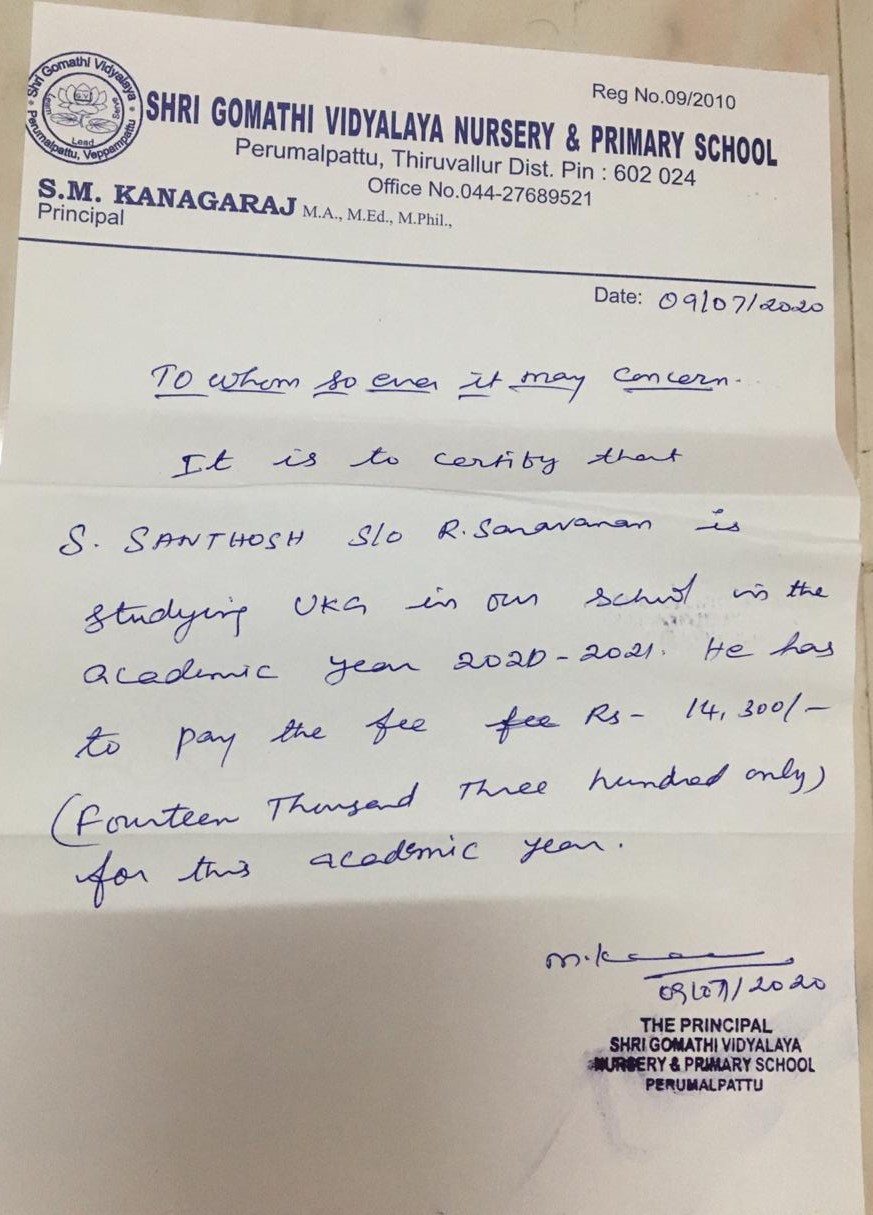 Shri Gomathi Vidyalaya
Learn Serve
Lead
Perumalpattu, Veppampattu
Reg No.09/2010
SHRI GOMATHI VIDYALAYA NURSERY & PRIMARY SCHOOL
Perumalpattu, Thiruvallur Dist. Pin : 602 024
Office No.044-27689521
S.M. KANAGARAJ M.A., M.Ed., M.Phil.,
Principal
Date: 09/07/2020
To whom so ever it may concern.
It is to certify that
S. SANTHOSH S/o R. Saravanan is
studying UKG in our school in the
academic year 2020-2021. He has
to pay the fee fee Rs- 14,300/-
(Fourteen Thousand Three hundred only)
for this academic year.
09/07/2020
THE PRINCIPAL
SHRI GOMATHI VIDYALAYA
NURSERY & PRIMARY SCHOOL
PERUMALPATTU